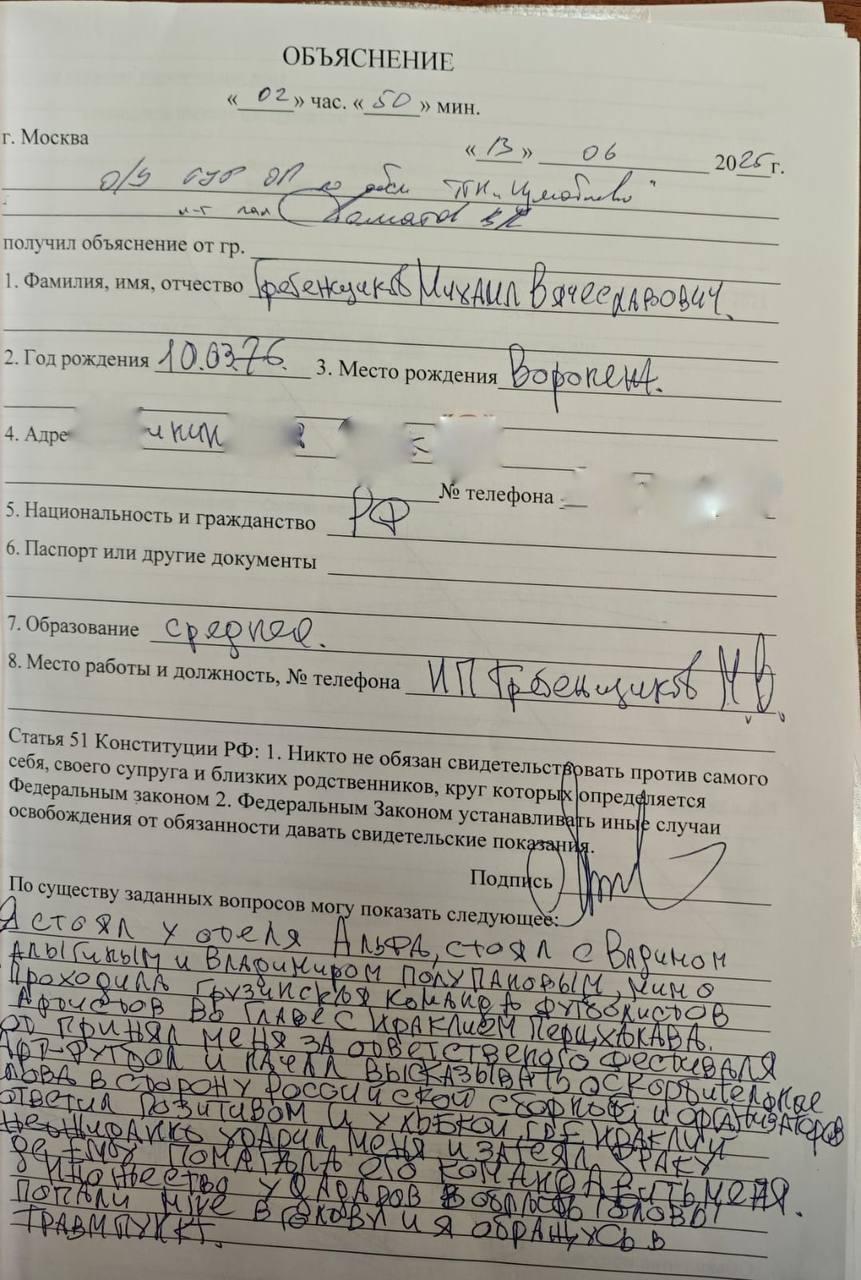 ОБЪЯСНЕНИЕ
«02» час. «50» мин.
г. Москва «13» 06 2025г.
о/у ОУР ОП по
получил объяснение от гр.
1. Фамилия, имя, отчество Гребенщиков Михаил Вячеславович.
2. Год рождения 10.03.76. 3. Место рождения Воронеж.
4. Адре
№ телефона
5. Национальность и гражданство РФ
6. Паспорт или другие документы
7. Образование среднее.
8. Место работы и должность, № телефона ИП Гребенщиков М.В.
Статья 51 Конституции РФ: 1. Никто не обязан свидетельствовать против самого
себя, своего супруга и близких родственников, круг которых определяется
Федеральным законом 2. Федеральным Законом устанавливать иные случаи
освобождения от обязанности давать свидетельские показания.
Подпись
По существу заданных вопросов могу показать следующее:
Я стоял у отеля Альфа, стоял с Вадимом
Алыгиным и Владимиром Полупановым, мимо
проходила Грузинская команда футболистов
Артистов во главе с Ираклием Перцхалава.
Он принял меня за ответственого фестиваля
Арт-футбол и начал высказывать оскорбительные
слова в сторону Российской сборной и организаторов
ответил позитивом и улыбкой, где Ираклий
неожиданно ударил меня и затеял драку
где ему помагала его команда бить меня.
Множество ударов в область головы
попали мне в голову и я обращусь в
травмпункт.